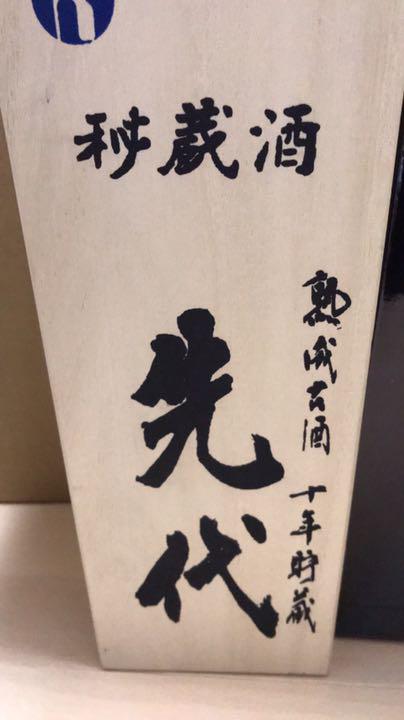 秘蔵酒
熟成古酒 十年貯蔵
先代